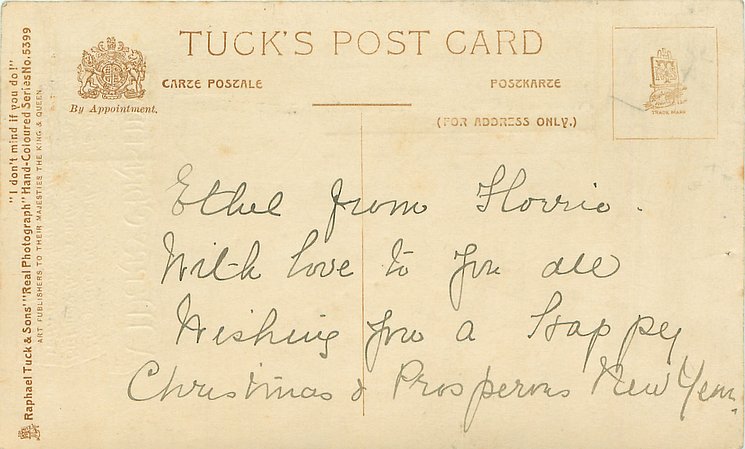 TUCK'S POST CARD
CARTE POSTALE
POSTKARTE
By Appointment.
(FOR ADDRESS ONLY.)
TRADE MARK
"I don't mind if you do!"
Raphael Tuck & Sons' "Real Photograph" Hand-Coloured Series No. 5399
ART PUBLISHERS TO THEIR MAJESTIES THE KING & QUEEN
Ethel from Florrie.
With love to you all
Wishing you a Happy
Christmas & Prosperous New Year.